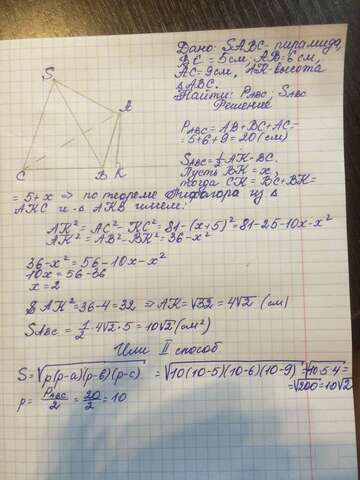 Дано: SABC- пирамида,
BC = 5 см; AB = 6 см,
AC = 9 см, AK-высота
△ABC.
Найти: P_ABC; S_ABC
Решение
S
A
C
B
K
P_ABC = AB+BC+AC =
= 5+6+9 = 20 (см)
S_ABC = 1/2 AK·BC.
Пусть BK = x,
тогда CK = BC+BK=
= 5+x => по теореме Пифагора из △
AKC и △ AKB имеем:
AK² = AC² - KC² = 81-(x+5)² = 81-25-10x-x²
AK² = AB² - BK² = 36-x²
36-x² = 56-10x-x²
10x = 56-36
x = 2
AK² = 36-4 = 32 => AK = √32 = 4√2 (см)
S_ABC = 1/2 · 4√2 · 5 = 10√2 (см²)
Или II способ
S = √p(p-a)(p-b)(p-c) = √10(10-5)(10-6)(10-9) = √10·5·4 =
= √200 = 10√2
p = P_ABC/2 = 20/2 = 10